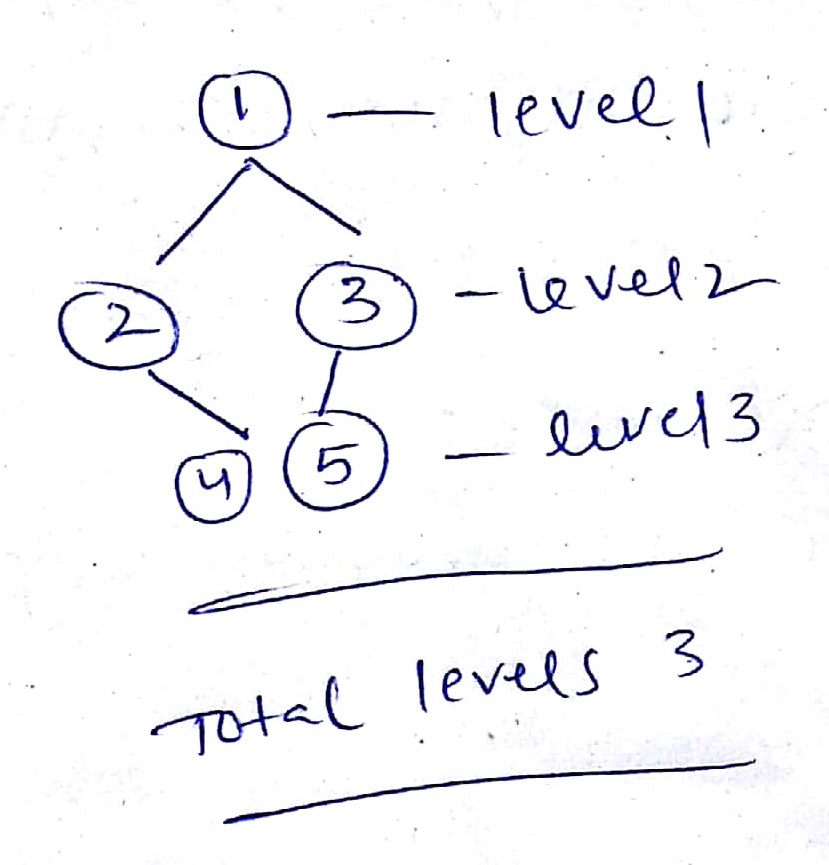 1 — level 1
2 3 - level 2
4 5 - level 3
Total levels 3